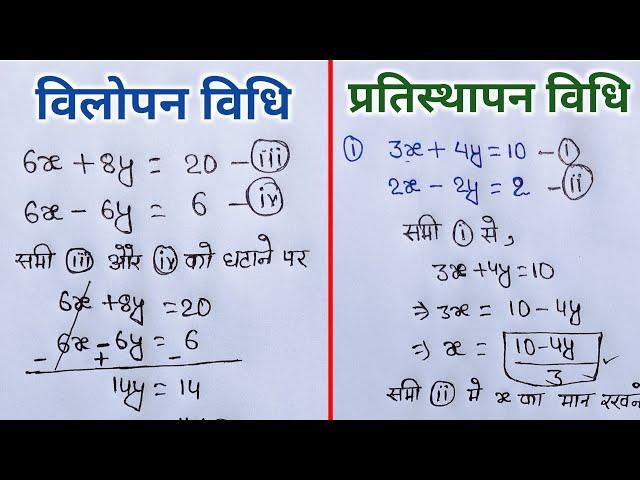 विलोपन विधि
6x + 8y = 20 - iii
6x - 6y = 6 - iv
समी iii और iv को घटाने पर
6x + 8y = 20
6x - 6y = 6
- + -
14y = 14
प्रतिस्थापन विधि
i 3x + 4y = 10 - i
2x - 2y = 2 - ii
समी i से,
3x + 4y = 10
⇒ 3x = 10 - 4y
⇒ x = 10 - 4y
3
समी ii मे x का मान रखने